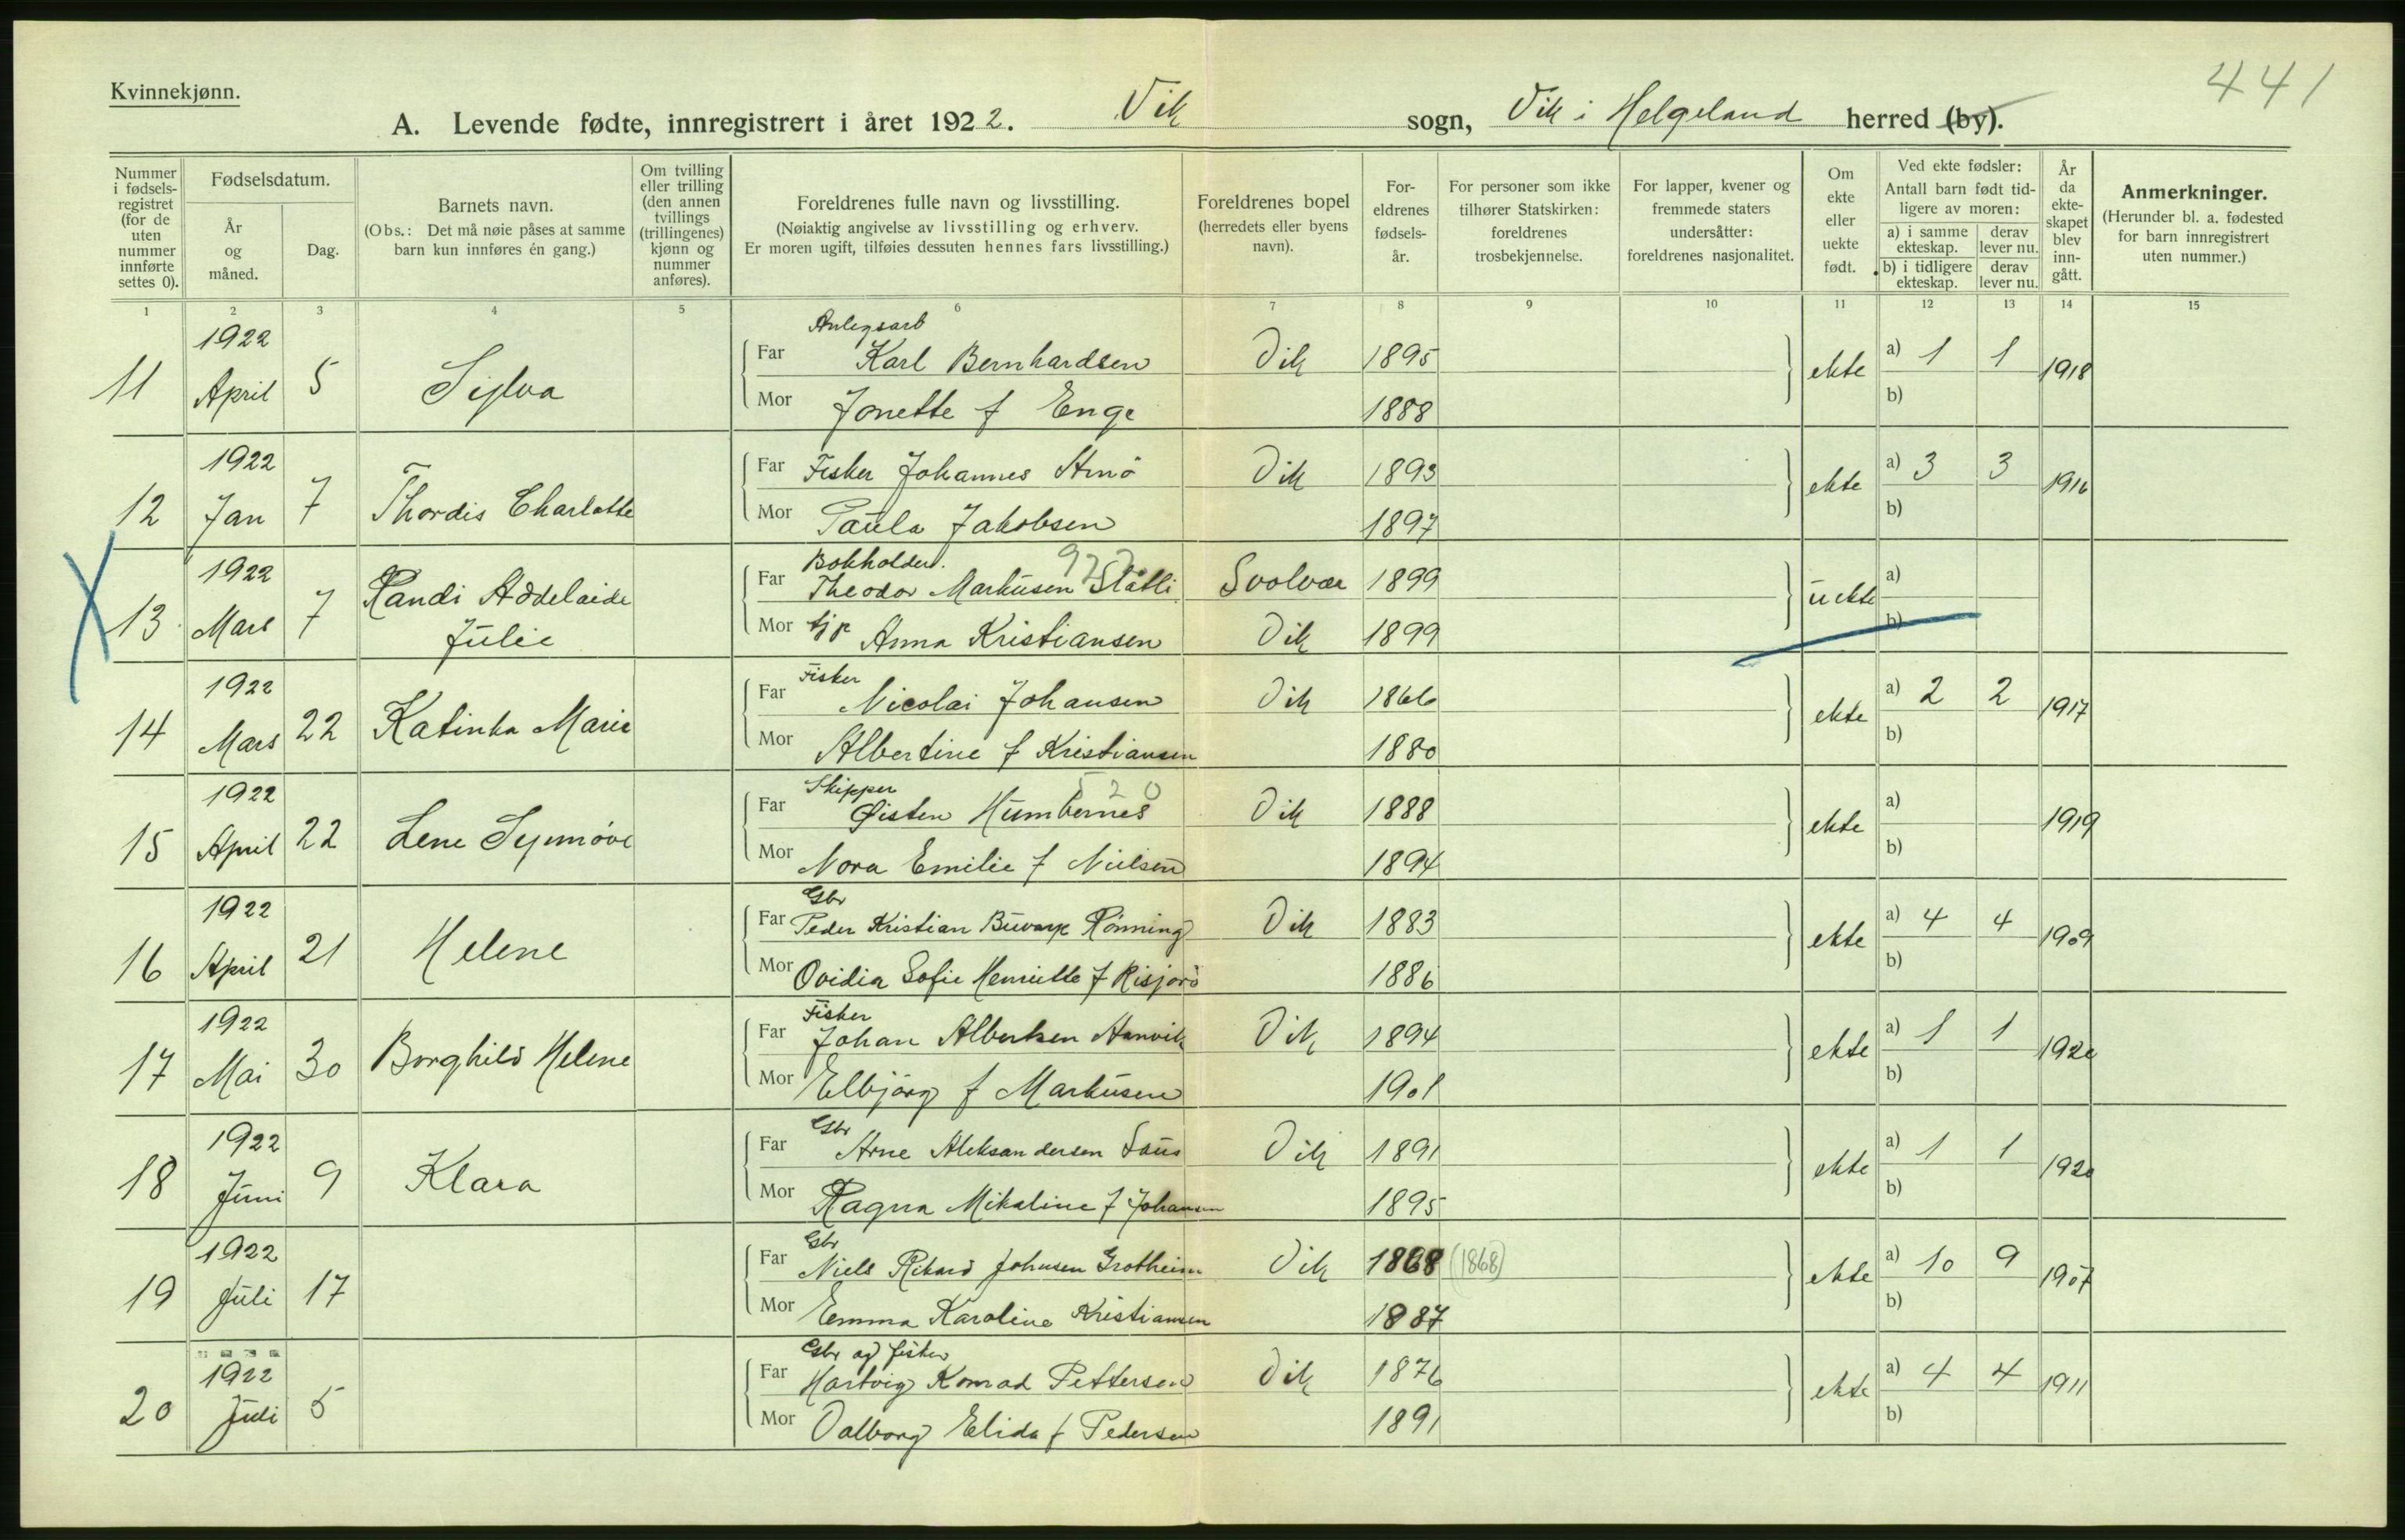 Kvinnekjønn.
441
A. Levende fødte, innregistrert i året 1922. Vik sogn, Vik i Helgeland herred (by).
Nummer i fødsels-registret (for de uten nummer innførte settes 0).
Fødselsdatum.
År og måned.
Dag.
Barnets navn.
(Obs.: Det må nøie påses at samme barn kun innføres én gang.)
Om tvilling eller trilling (den annen tvillings (trillingenes) kjønn og nummer anføres).
Foreldrenes fulle navn og livsstilling.
(Nøiaktig angivelse av livsstilling og erhverv.
Er moren ugift, tilføies dessuten hennes fars livsstilling.)
Foreldrenes bopel (herredets eller byens navn).
For-eldrenes fødsels-år.
For personer som ikke tilhører Statskirken: foreldrenes trosbekjennelse.
For lapper, kvener og fremmede staters undersåtter: foreldrenes nasjonalitet.
Om ekte eller uekte født.
Ved ekte fødsler:
Antall barn født tid-ligere av moren:
a) i samme ekteskap. derav lever nu.
b) i tidligere ekteskap. derav lever nu.
År da ekte-skapet blev inn-gått.
Anmerkninger.
(Herunder bl. a. fødested for barn innregistrert uten nummer.)
1 2 3 4 5 6 7 8 9 10 11 12 13 14 15
Anlegsarb
11 1922 April 5 Sylva Far Karl Bernhardsen Vik 1895 ekte a) 1 1 1918
Mor Jonette f Enge 1888 b)
12 1922 Jan 7 Thordis Charlotte Far Fisker Johannes Strnö Vik 1893 ekte a) 3 3 1916
Mor Paula Jakobsen 1897 b)
Bokholder. 927
13 1922 Mars 7 Randi Addelaide Julie Far Theodor Markusen Slåtli Svolvær 1899 uekte a)
Mor tjp Anna Kristiansen Vik 1899 b)
Fisker
14 1922 Mars 22 Katinka Marie Far Nicolai Johansen Vik 1866 ekte a) 2 2 1917
Mor Albertine f Kristiansen 1880 b)
Skipper 520
15 1922 April 22 Lene Synnøve Far Øisten Humbernes Vik 1888 ekte a) 1919
Mor Nora Emilie f Nielsen 1894 b)
Gbr
16 1922 April 21 Helene Far Peder Kristian Buvarp Rönning Vik 1883 ekte a) 4 4 1909
Mor Ovidia Sofie Henriette f Risjorö 1886 b)
Fisker
17 1922 Mai 30 Borghild Helene Far Johan Albertsen Hanvik Vik 1894 ekte a) 1 1 1920
Mor Elbjörg f Markusen 1901 b)
Gbr
18 1922 Juni 9 Klara Far Arne Aleksandersen Saus Vik 1891 ekte a) 1 1 1920
Mor Ragna Mikaline f Johansen 1895 b)
Gbr
19 1922 Juli 17 Far Niels Rikard Johnsen Grotheim Vik 1868 (1868) ekte a) 10 9 1907
Mor Emma Karoline Kristiansen 1887 b)
Gbr og fisker
20 1922 Juli 5 Far Hartvig Konrad Pettersen Vik 1876 ekte a) 4 4 1911
Mor Valborg Elida f Pedersen 1891 b)